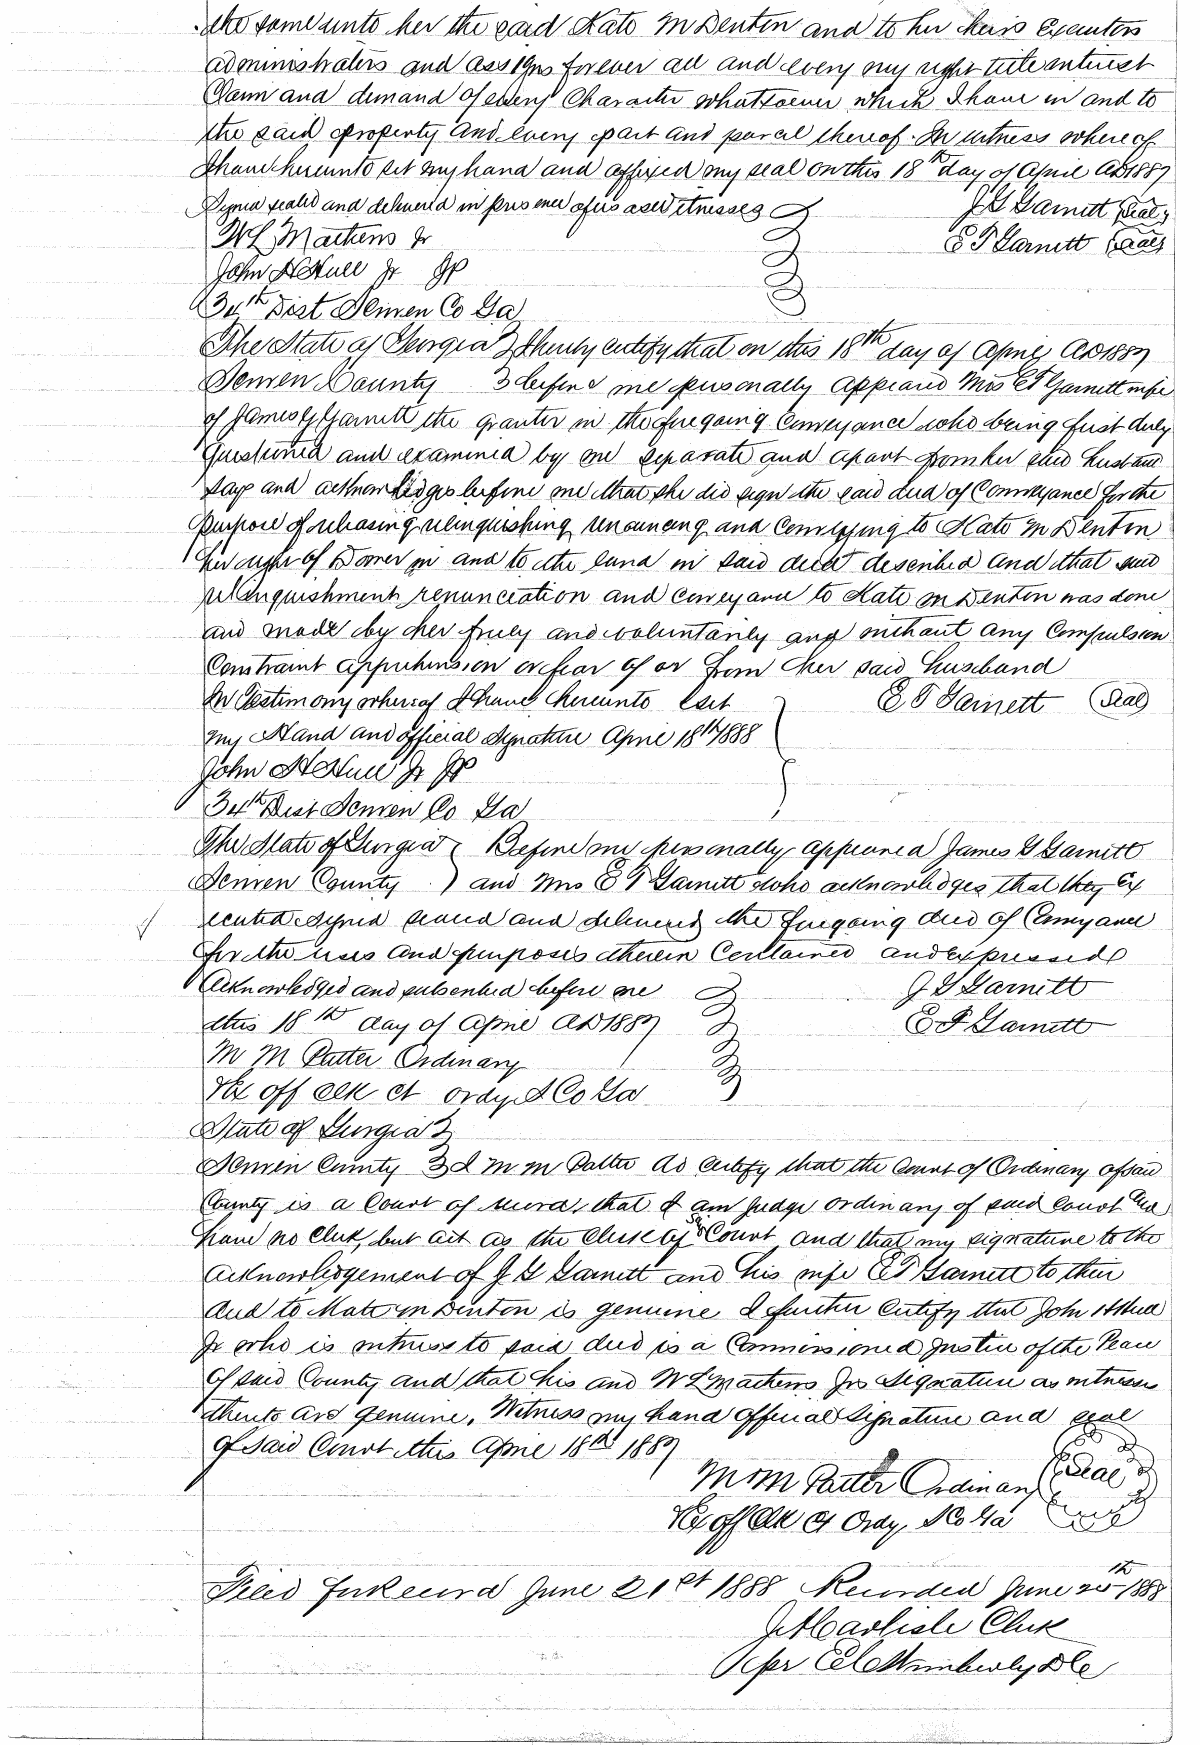 the same unto her the said Kate M Denton and to her heirs Executors
administrators and assigns forever all and every my right title interest
Claim and demand of every Character whatsoever which I have in and to
the said property and every part and parcel thereof. In witness whereof
I have hereunto set my hand and affixed my seal on this 18th day of April AD 1887
Signed sealed and delivered in presence of us as witnesses
J G Garnett (Seal)
W L Mathews Jr
E T Garnett (Seal)
John H Hull Jr JP
34th Dist Scriven Co Ga
The State of Georgia } I hereby certify that on this 18th day of April AD 1887
Scriven County } before me personally appeared Mrs E T Garnett wife
of James G Garnett the grantor in the foregoing Conveyance who being first duly
questioned and examined by me separate and apart from her said husband
says and acknowledges before me that she did sign the said deed of Conveyance for the
purpose of releasing relinquishing renouncing and Conveying to Kate M Denton
her right of Dower in and to the land in said deed described and that said
relinquishment renunciation and conveyance to Kate M Denton was done
and made by her freely and voluntarily and without any Compulsion
Constraint apprehension or fear of or from her said husband
In Testimony whereof I have hereunto set
E T Garnett (Seal)
my Hand and official Signature April 18th 1888
John H Hull Jr JP
34th Dist Scriven Co Ga
The State of Georgia } Before me personally appeared James G Garnett
Scriven County } and Mrs E T Garnett who acknowledges that they Ex
ecuted signed sealed and delivered the foregoing deed of Conveyance
for the uses and purposes therein Contained and expressed
Acknowledged and subscribed before me
J G Garnett
this 18th day of April AD 1887
E T Garnett
M M Potter Ordinary
& Ex off Clk Ct ordy. S Co Ga
State of Georgia }
Scriven County } I M M Potter do certify that the Court of Ordinary of said
County is a Court of record, that I am Judge ordinary of said Court and
have no Clerk, but act as the Clerk of sd Court and that my signature to the
acknowledgement of J G Garnett and his wife E T Garnett to their
deed to Kate M Denton is genuine I further Certify that John H Hull
Jr who is witness to said deed is a Commissioned Justice of the Peace
of said County and that his and W L Mathews Jrs Signature as witnesses
thereto are genuine. Witness my hand official Signature and seal
of said Court this April 18th 1887
M M Potter Ordinary (Seal)
& Ex off Clk Ct Ordy, S Co Ga
Filed for Record June 21st 1888 Recorded June 25th 1888
J H Carlisle Clerk
per E C Wimberly D C